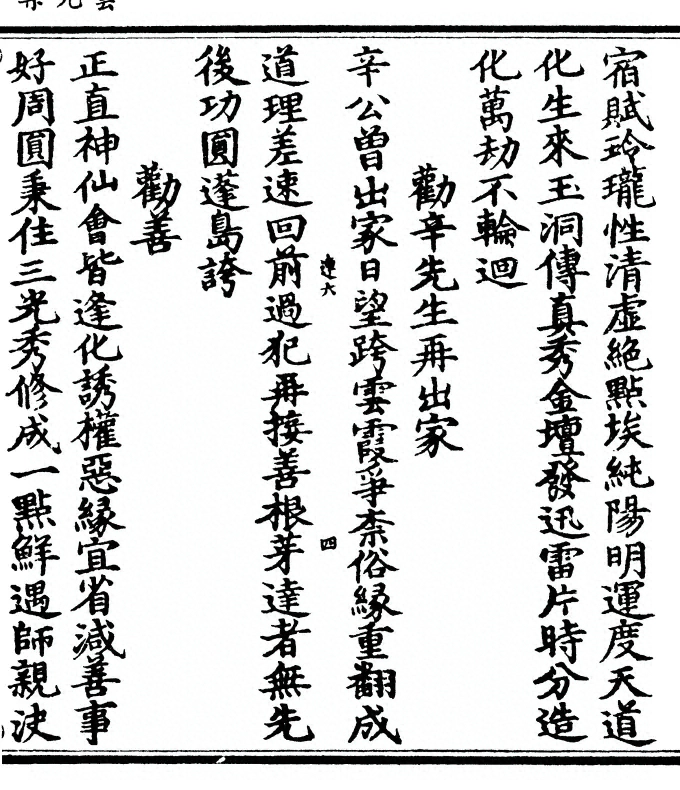 宿賦玲瓏性清虛絕點埃純陽明運度天道
化生來玉洞傳真秀金壇發迅雷片時分造
化萬劫不輪迴
勸辛先生再出家
辛公曾出家日望跨雲霞爭柰俗緣重翻成
道理差速回前過犯再接善根芽達者無先
連六
四
後功圓蓬島誇
勸善
正直神仙會皆逢化誘權惡緣宜省減善事
好周圓秉住三光秀修成一點鮮遇師親決